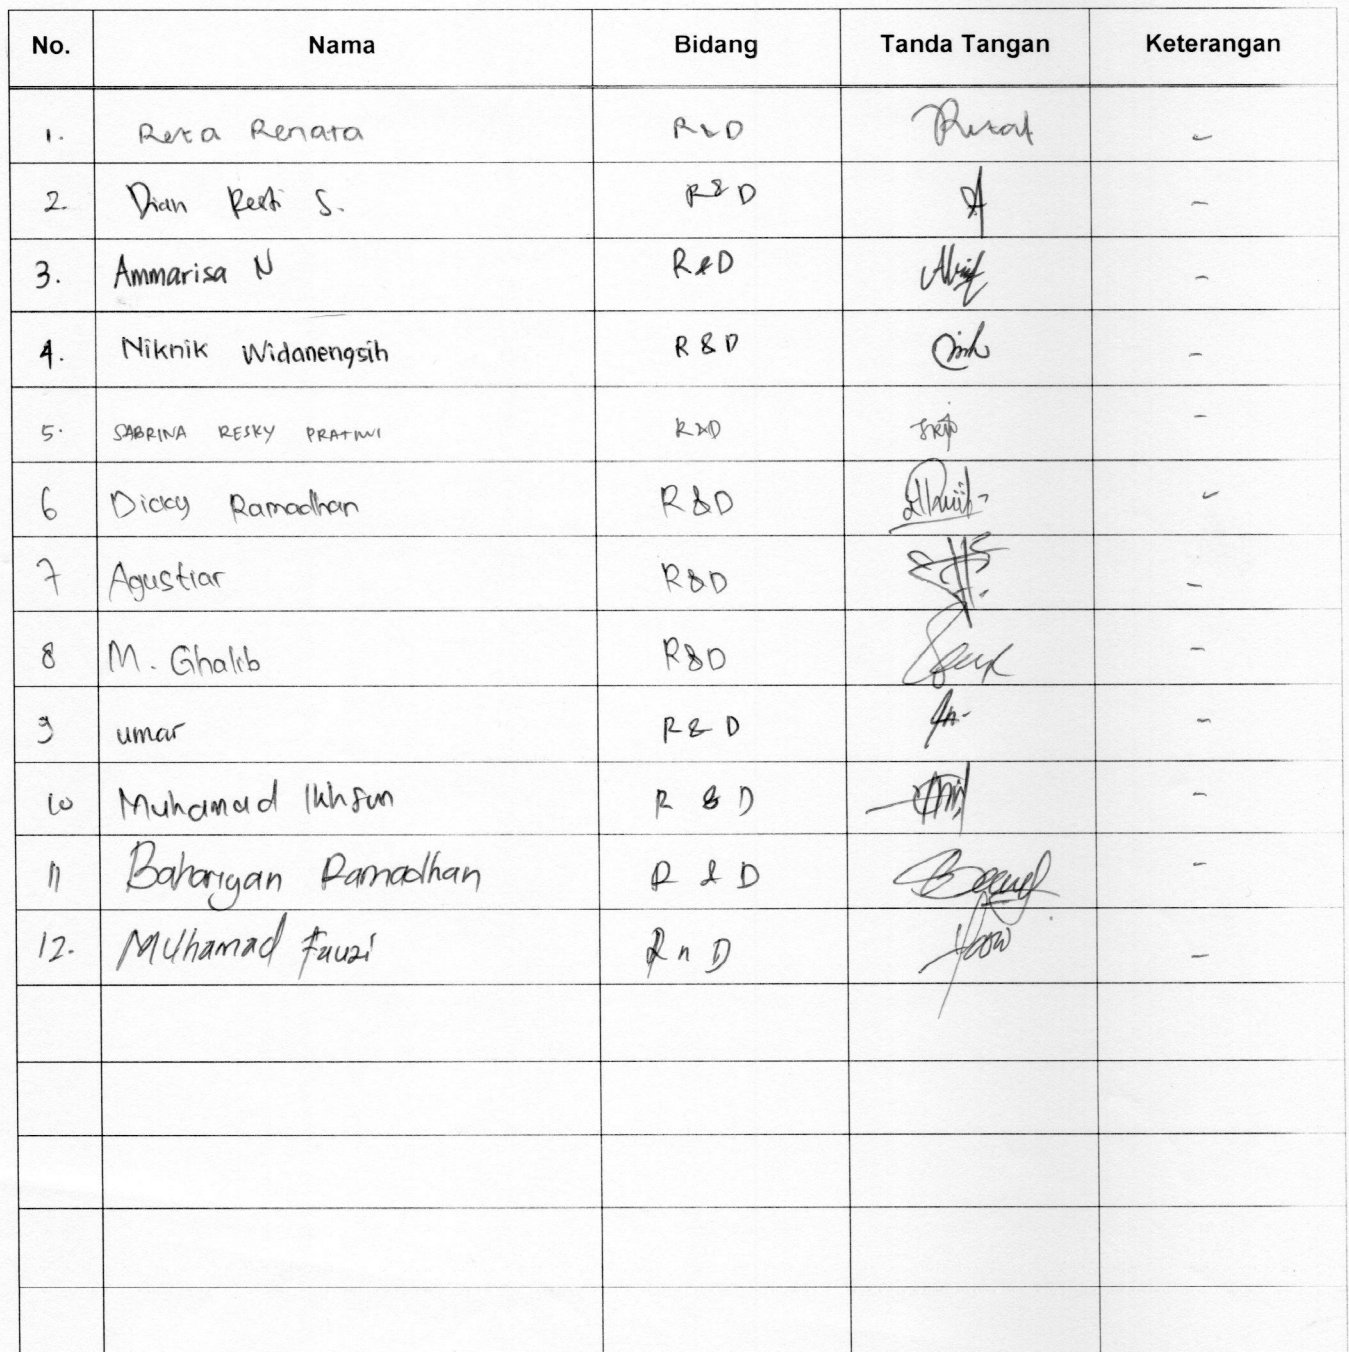 No. Nama Bidang Tanda Tangan Keterangan
1. Reza Renata R&D -
2. Dian Resti S. R&D -
3. Ammarisa N R&D -
4. Niknik Widanengsih R&D -
5. SABRINA RESKY PRATIWI R&D -
6 Dicky Ramadhan R&D -
7 Agustiar R&D -
8 M. Ghalib R&D -
9 umar R&D -
10 Muhamad Ikhsan R & D -
11 Ramadhan R & D -
12. Muhamad Fauzi R n D -